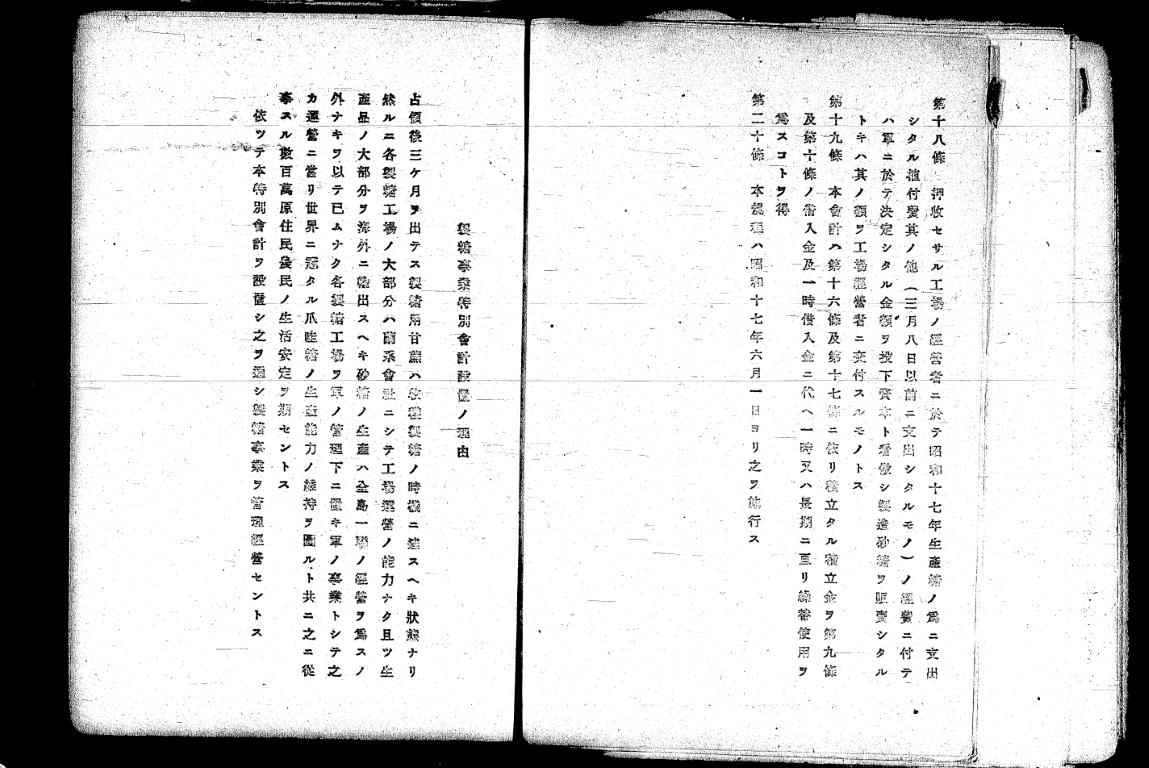 第十八條　押收セサル工場ノ經營者ニ於テ昭和十七年生產糖ノ爲ニ支出
シタル植付費其ノ他（三月八日以前ニ支出シタルモノ）ノ經費ニ付テ
ハ軍ニ於テ決定シタル金額ヲ投下資本ト看做シ製造砂糖ヲ販賣シタル
トキハ其ノ額ヲ工場經營者ニ交付スルモノトス
第十九條　本會計ハ第十六條及第十七條ニ依リ積立タル積立金ヲ第九條
及第十條ノ借入金及一時借入金ニ代ヘ一時又ハ長期ニ亘リ繰替使用ヲ
爲スコトヲ得
第二十條　本規程ハ昭和十七年六月一日ヨリ之ヲ施行ス
製糖事業特別會計設置ノ理由
占領後三ケ月ヲ出テス製糖用甘蔗ハ收穫製糖ノ時機ニ達スヘキ狀態ナリ
然ルニ各製糖工場ノ大部分ハ蘭系會社ニシテ工場運營ノ能力ナク且ツ生
產品ノ大部分ヲ海外ニ輸出スヘキ砂糖ノ生產ハ全島一聯ノ經營ヲ爲スノ
外ナキヲ以テ已ムナク各製糖工場ヲ軍ノ管理下ニ置キ軍ノ事業トシテ之
カ運營ニ當リ世界ニ冠タル爪哇糖ノ生產能力ノ維持ヲ圖ルト共ニ之ニ從
事スル數百萬原住民農民ノ生活安定ヲ期セントス
依ツテ本特別會計ヲ設置シ之ヲ通シ製糖事業ヲ管理經營セントス